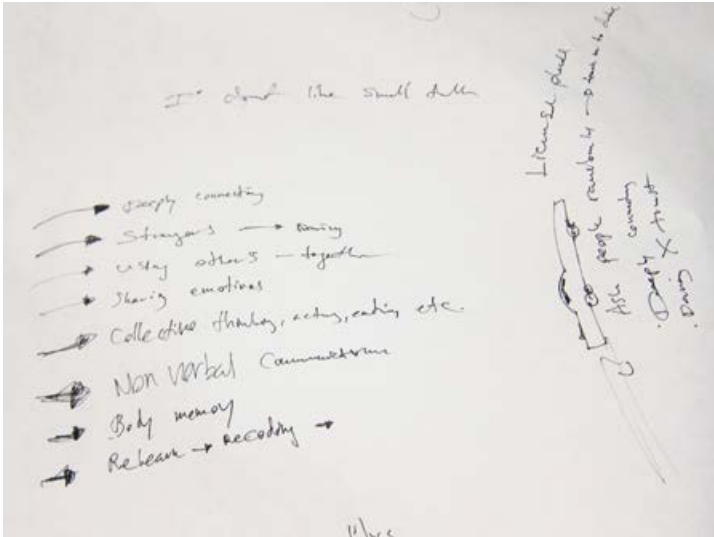 I don't like small talk
Deeply connecting
Strangers →
Using others — together
Sharing emotions
Collective thinking, acting, eating etc.
Non verbal Communication
Body memory
→ Recoding →
License plate
Ask people randomly →
Deeply connecting
X trust